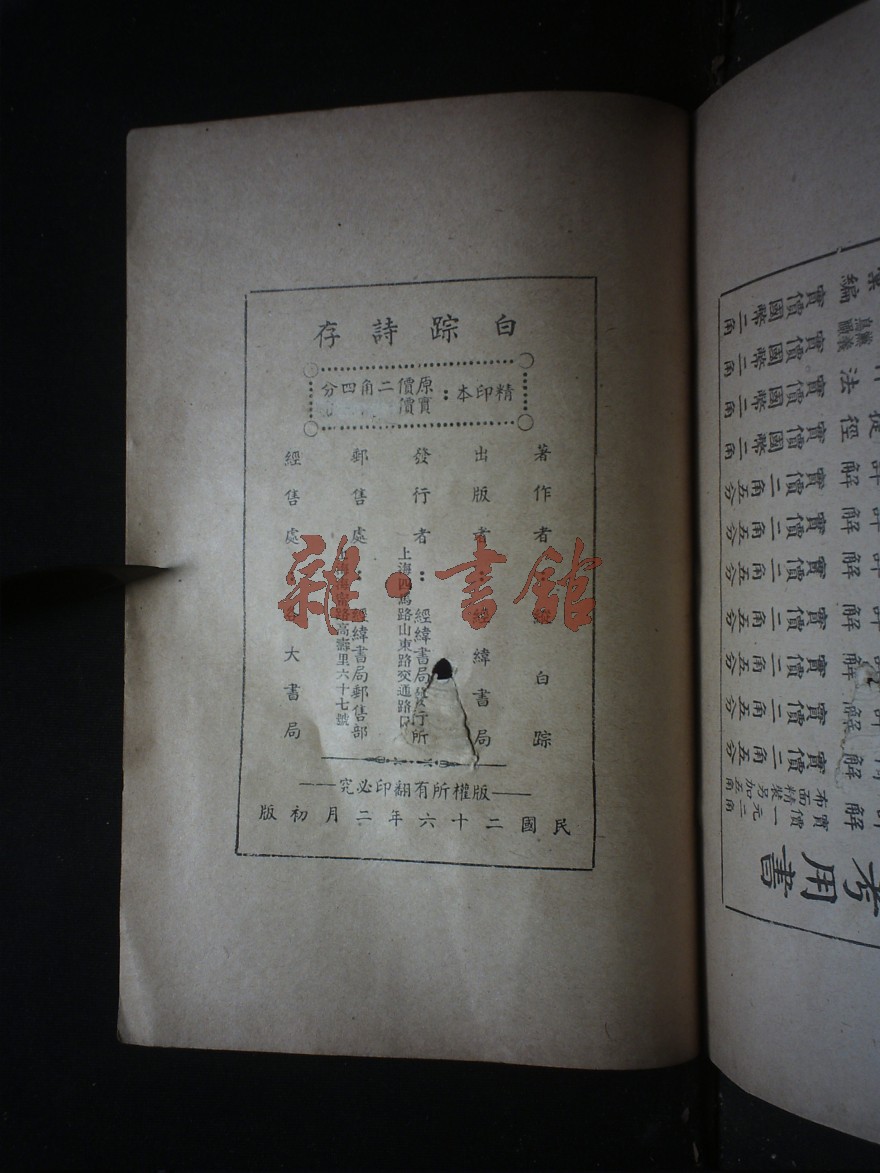 白踪詩存
精印本：原價二角四分
實價
著作者 白踪
出版者：經緯書局
發行者：經緯書局發行所
上海四馬路山東路交通路口
郵售處：經緯書局郵售部
路高壽里六十七號
經售處 大書局
——版權所有翻印必究——
民國二十六年二月初版
編 實價國幣二角
實價國幣二角
法 實價國幣二角
徑 實價國幣二角
解 實價二角五分
解 實價二角五分
解 實價二角五分
解 實價二角五分
解 實價二角五分
解 實價二角五分
解 實價二角五分
解 實價一元二角
布面精裝另加五角
考用書
雜·書館